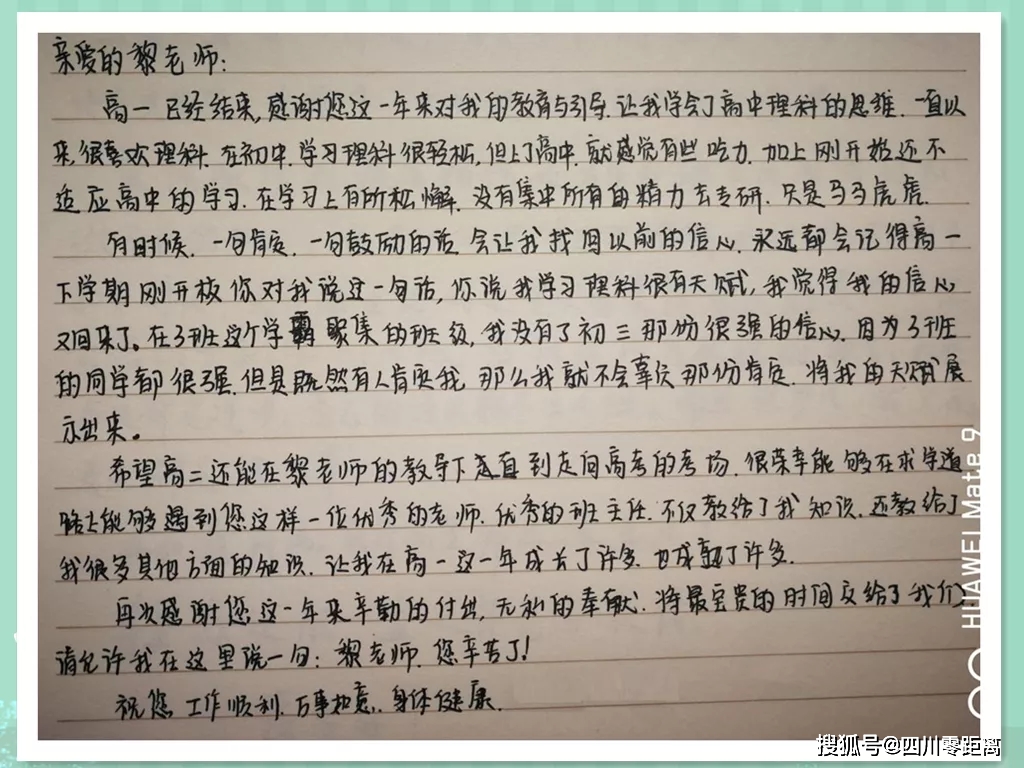 亲爱的黎老师:
高一已经结来,感谢您这一年来对我的教育与引导.让我学会了高中理科的思维.一直以
来,很喜欢理科.在初中.学习理科很轻松,但上了高中.就感觉有些吃力.加上刚开始还不
适应高中的学习.在学习上有所松懈.没有集中所有的精力去专研.只是马马虎虎.
有时候.一句肯定.一句鼓励的话会让我找回以前的信心.永远都会记得高一
下学期刚开校你对我说过一句话,你说我学习理科很有天赋,我觉得我的信心
又回来了。在3班这个学霸聚集的班级,我没有了初三那份很强的信心.因为3班
的同学都很强.但是既然有人肯定我.那么我就不会辜负那份肯定.将我的天赋展
示出来。
希望高二还能在黎老师的教导下走直到走向高考的考场.很荣幸能够在求学道
路上能够遇到您这样一位优秀的老师.优秀的班主任.不仅教给了我知识.还教给了
我很多其他方面的知识.让我在高一这一年成长了许多.也成熟了许多.
再次感谢您这一年来辛勤的付出,无私的奉献.将最宝贵的时间交给了我们
请允许我在这里说一句:黎老师.您辛苦了!
祝您工作顺利.万事如意.身体健康.
HUAWEI Mate 9
搜狐号@四川零距离